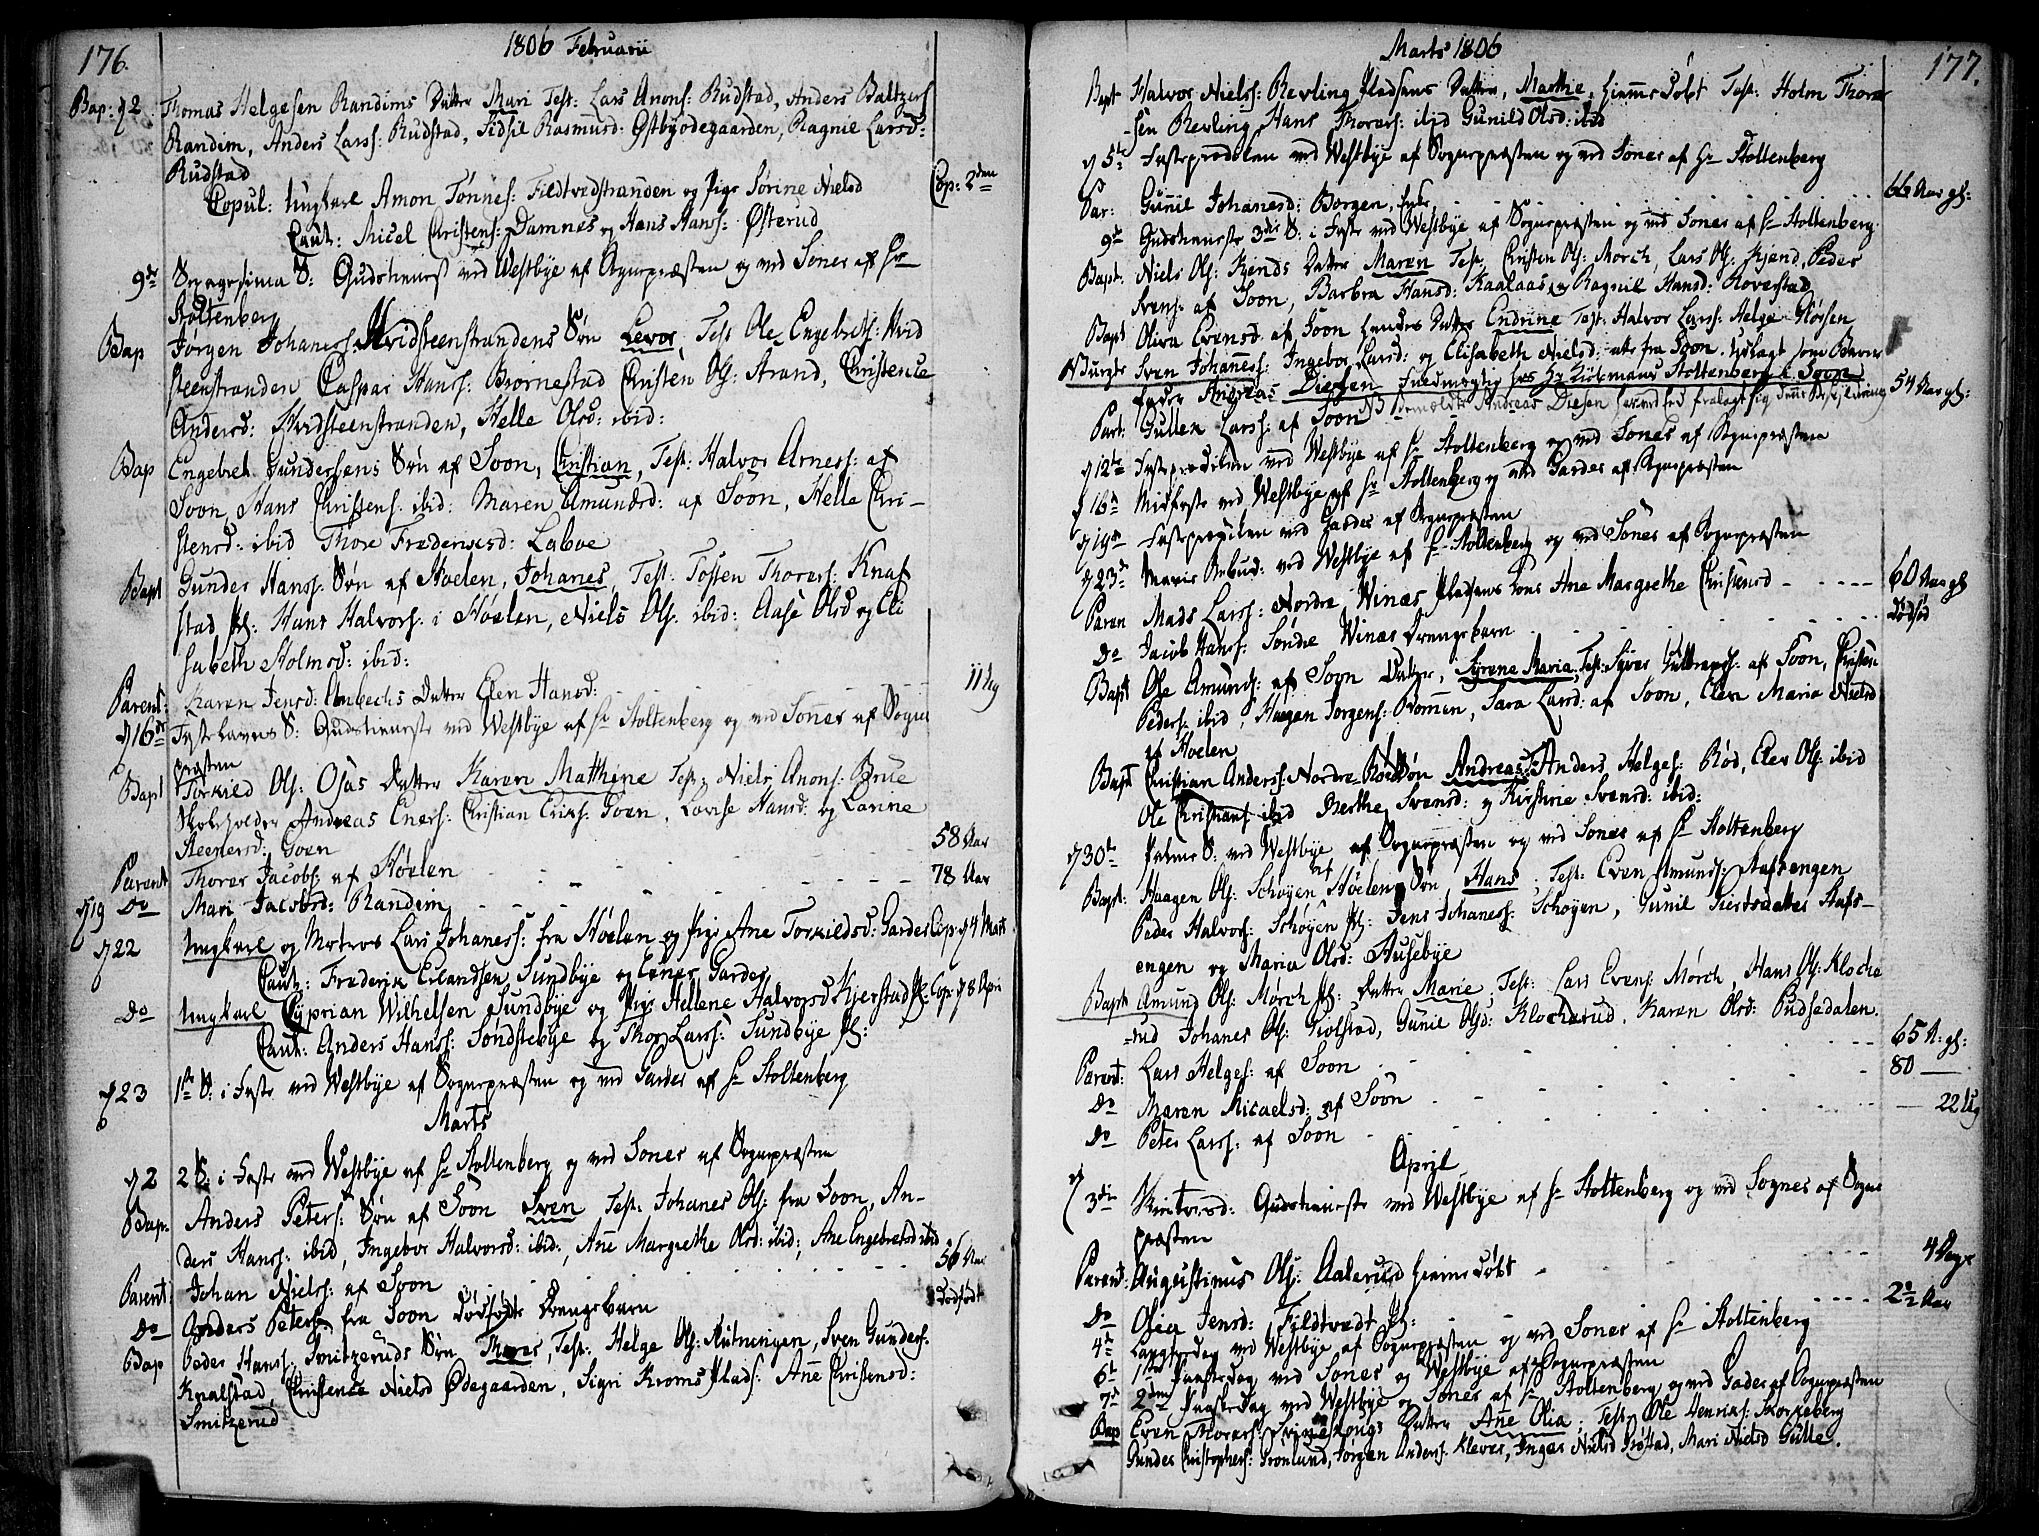 176.
1806 Februarii
Bap: d 2. Thomas Helgesen Randims Datter Mari Test: Lars Anons: Rudstad, Anders Baltzers
Randim, Anders Larss: Rudstad, Sidsil Rasmusd: Østbyødegaarden, Ragnil Larsd:
Rudstad
Copul: Ungkarl Amon Tønnes: Fildtvedstranden og Pige Sørine Nielsd Cop: 2den
Caut: Micel Christens: Damnes og Hans Hanss: Østerud
9de Sexagesima S: Gudstieneste ved Westbye af Sognepræsten og ved Soner af Hr
Stoltenberg
Bap Jørgen Johaness: Hvidsteenstrandens Søn Levor, Test Ole Engebrets: Hvid
steenstranden Caspar Hanss: Brornestad Christen Ols: Strand, Christence
Andersd: Hvidsteenstranden, Helle Olsd: ibid:
Bap Engebret Gundersens Søn af Soon, Christian, Test: Halvor Arness: af
Soon, Hans Christens: ibid: Maren Amundsd: af Soon, Helle Chri-
stensd: ibid Thore Fredericsd: Laboe
Bapt Gunder Hanss: Søn af Hoelen, Johanes, Test: Tosten Thorers: Knaf
stad pl: Hans Halvors: i Høelen, Niels Ols: ibid: Aase Olsd og Eli
sabeth Holmsd: ibid:
Parent: Karen Jensd: Ambechs Datter Elen Hansd: 11 Ug
d 16de Fastelavens S: Gudstieneste ved Westbye af Hr Stoltenberg og ved Soner af Sogne
præsten
Bapt Torkild Ols: Osaas Datter Karen Mathine Test: Niels Anons: Brue
Skoleholder Andreas Eners: Christian Eriks: Goen, Lovise Hansd: og Larine
Steenersd: Goen
Parent Thorer Jacobs: af Høelen 58 Aar
d 19 Do Mari Jacobsd: Randim 78 Aar
d 22 Ungkarl og Matros Lars Johaness: fra Høelen og Pige Ane Torkildsd: Garder Cop: d 4 Marts
Caut: Frederik Erlandsen Sundbye og Einer Garder
Do Ungkarl Cyprian Wilhelsen Sundbye og Pige Hellene Halvorsd Kjerstad pl: Cop: d 8 Apri
Caut: Anders Hanss: Søndstebye og Thor Larss: Sundbye pl:
d 23 1ste S: i Faste ved Westbye af Sognepræsten og ved Garder af Hr Stoltenberg
Marts
d 2 2 S: i Faste ved Westbye af Hr Stoltenberg og ved Soner af Sognepræsten
Bap. Anders Peters: Søn af Soon Sven Test: Johanes Ols: fra Soon, An-
ders Hanss: ibid, Ingebor Halvorsd: ibid:, Ane Margrethe Olsd: ibid:, Ane Engebretsd ibid
Parent: Johan Nielss: af Soon 56 Aar
Do Anders Peters: fra Soon dødfødte Drengebarn Dødfødt
Bap Peder Hanss: Smitzeruds Søn Thores, Test: Helge Ols: Hutningen, Sven Gunders:
Knalstad, Christence Nielsd Ødegaarden, Sigri Kroms Plads: Ane Christensd:
Smitzerud
Marts 1806
177.
Bapt Halvor Nielss: Revling Pladsens Datter, Marthe, hiemmedøbt Test: Holm Thorer
-sen Revling, Hans Thorers: ibid Gunild Olsd: ibid
d 5te Fasteprædiken ved Westbye af Sognepræsten og ved Soner af Hr Stoltenberg
Par: Gunil Johanesd: Borgen, Enke 66 Aar gl:
9de Gudstieneste 3die S: i Faste ved Westbye af Sognepræsten og ved Soner af Hr Stoltenberg.
Bapt: Niels Ols: Kjends Datter Maren Test: Christen Ols: Morch, Lars Ols: Kjend, Peder
Svens: af Soon, Barbra Hansd: Kaalaas, Ragnil Hansd: Roverstad
Bapt Oliva Evensd: af Soon hendes Datter Endrine Test: Halvor Larss: Helge Gløsen
Sven Johaness: Ingebor Larsd: og Elisabeth Nielsd: alle fra Soon. Udlagt som Barne
fader Andreas Diesen Fuldmægtig hos Hr Kiøbmand Stoltenberg i Soon
Part: Gullek Larss: af Soon NB bemeldte Andreas Diesen 54 Aar gl:
d 12te Fasteprædiken ved Westbye af Hr Stoltenberg og ved Soner af Sognepræsten
d 16de Midfaste ved Westbye af Hr Stoltenberg og ved Garder af Sognepræsten
d 19de Fasteprædiken ved Garder af Sognepræsten
d 23de Mariæ Bebud: ved Westbye af Hr Stoltenberg og ved Soner af Sognepræsten
Paren Mads Larss: Nordre Winæs Pladsens Kone Ane Margrethe Christensd 60 Aar gl
Do Jacob Hanss: Søndre Winæs Drengebarn Dødfød
Bapt Ole Amunds: af Soon Datter, Syrene Maria, Test: Syver Guttorms: af Soon, Christen
Peders: ibid, Haagen Jorgens: Bommen, Sara Larsd: af Soon, Elen Maria Nielsd
af Hoelen
Bapt Christian Anderss: Nordre Røeds Søn Andreas, Anders Helges: Rød, Elev Ols: ibid
Ole Christians: ibid Berthe Svensd: og Kirstine Svensd: ibid:
d 30te Palme S: ved Westbye af Sognepræsten og ved Soner af Hr Stoltenberg
Bapt: Haagen Ols: Schøyen af Høelen Søn, Hans. Test: Even Amunds: Stafsengen
Peder Halvors: Schøyen pl: Jens Johaness: Schøyen, Gunil Siversdatter Stafs-
engen og Maria Olsd: Husebye
Bapt Amund Ols: Mørch pl: Datter Marie, Test: Lars Evens: Mørch, Hans Ols: Kloche
-rud Johanes Ols: Giolstad, Gunil Olsd: Klocherud. Karen Olsd: Pudsedalen.
Parent: Lars Helges: af Soon 65 A: gl:
Do Maren Micaelsd: af Soon 80 —
Do Peter Larss: af Soon — 22 Ug
April
d 3die Skiertorsd: Gudstieneste ved Westbye af Hr Stoltenberg og ved Sogner af Sogne
præsten
Parent: Augustinus Ols: Aalerud hiemedøbt 4 Dage
Do Olea Jensd: Fildtvedt pl: 2½ Aar
4de Langfredag ved Westbye af Sognepræsten og ved Soner af Hr Stoltenberg
6te 1ste Paaskedag ved Soner og Westbye af Sognepræsten
7de 2den Paaskedag ved Westbye og Soner af Hr Stoltenberg og ved Gader af Sognepræsten
Bap Even Thorers: Svinskougs Datter Ane Olia, Test: Ole Henriks: Skorkeberg
Gunder Christophers: Grønlund, Jørgen Anders: Klever, Inger Nielsd Trøstad, Mari Nielsd Gulle.